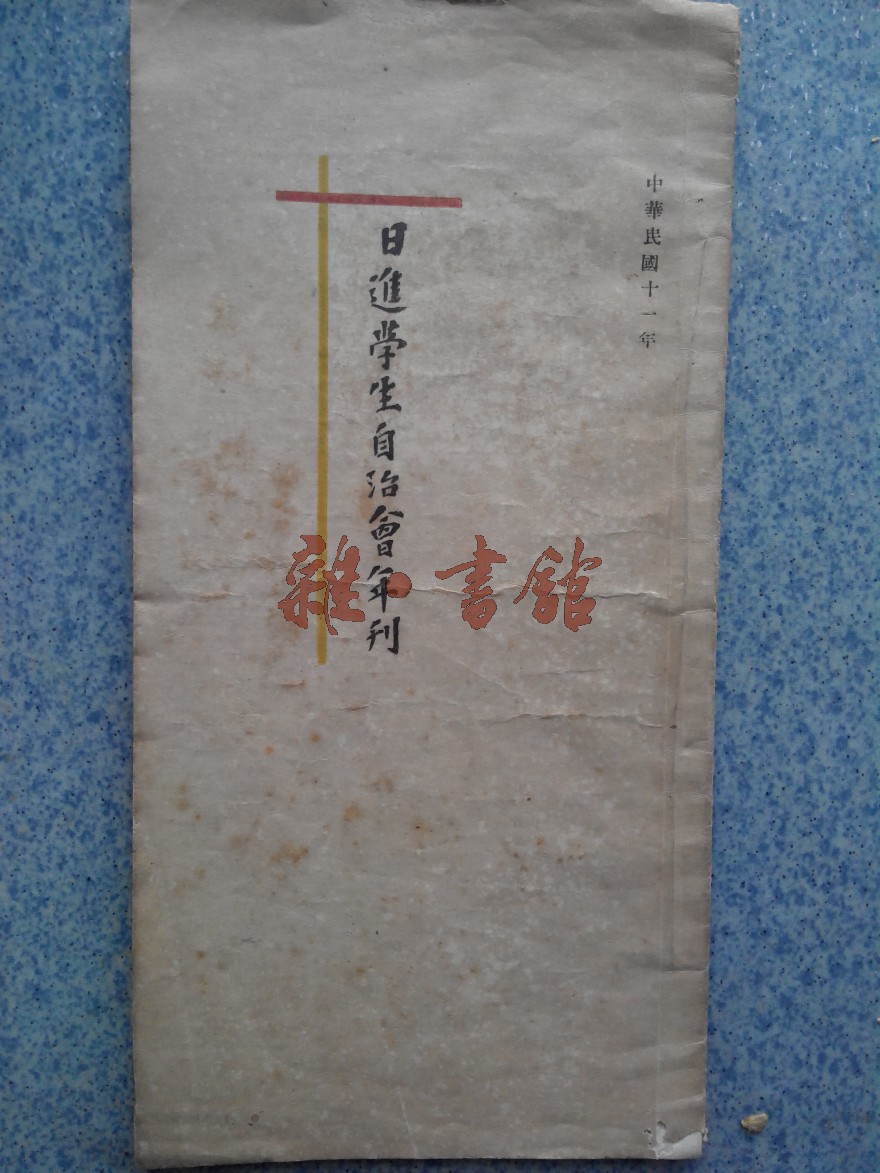 中華民國十一年
日進學生自治會年刊
雜·書館